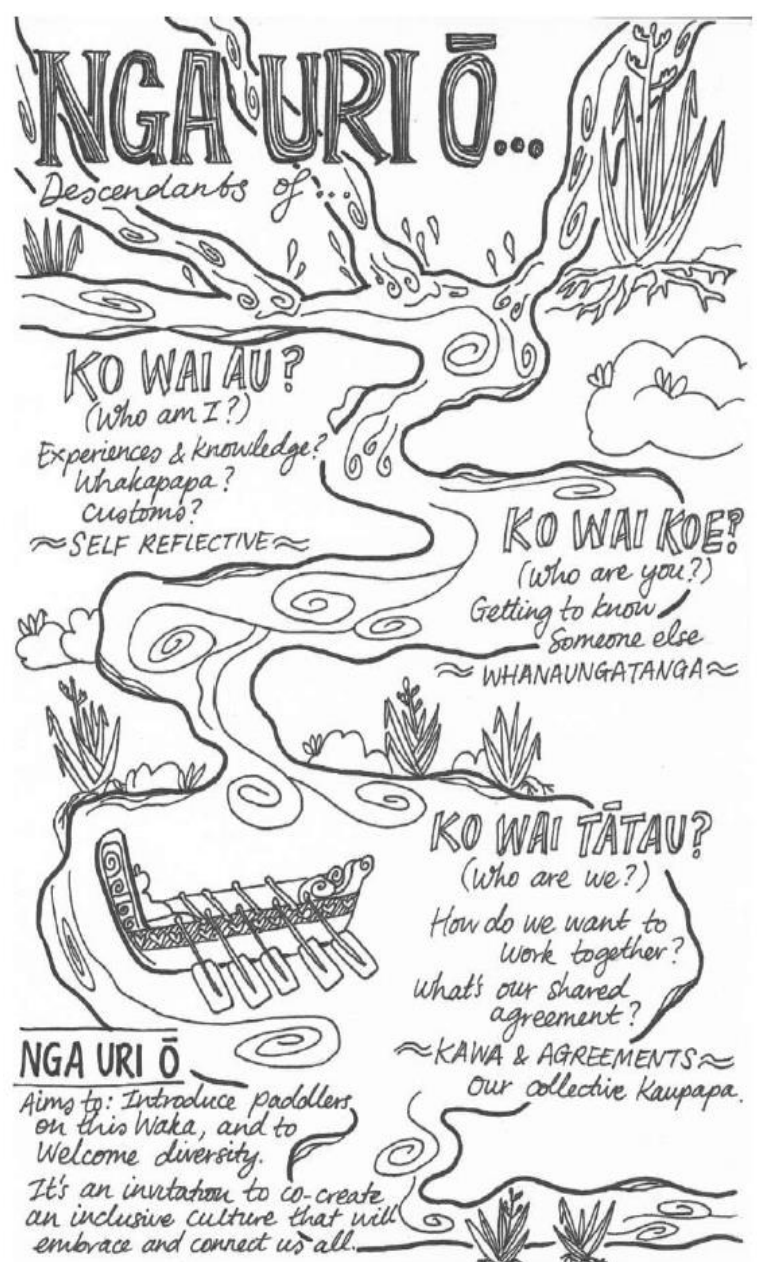 NGA URI Ō...
Descendants of...
KO WAI AU?
(Who am I?)
Experiences & knowledge?
Whakapapa?
Customs?
~SELF REFLECTIVE~
KO WAI KOE?
(Who are you?)
Getting to know
Someone else
~WHANAUNGATANGA~
KO WAI TĀTAU?
(Who are we?)
How do we want to
work together?
What's our shared
agreement?
~KAWA & AGREEMENTS~
Our collective Kaupapa.
NGA URI Ō
Aims to: Introduce paddlers
on this Waka, and to
Welcome diversity.
It's an invitation to co-create
an inclusive culture that will
embrace and connect us all.